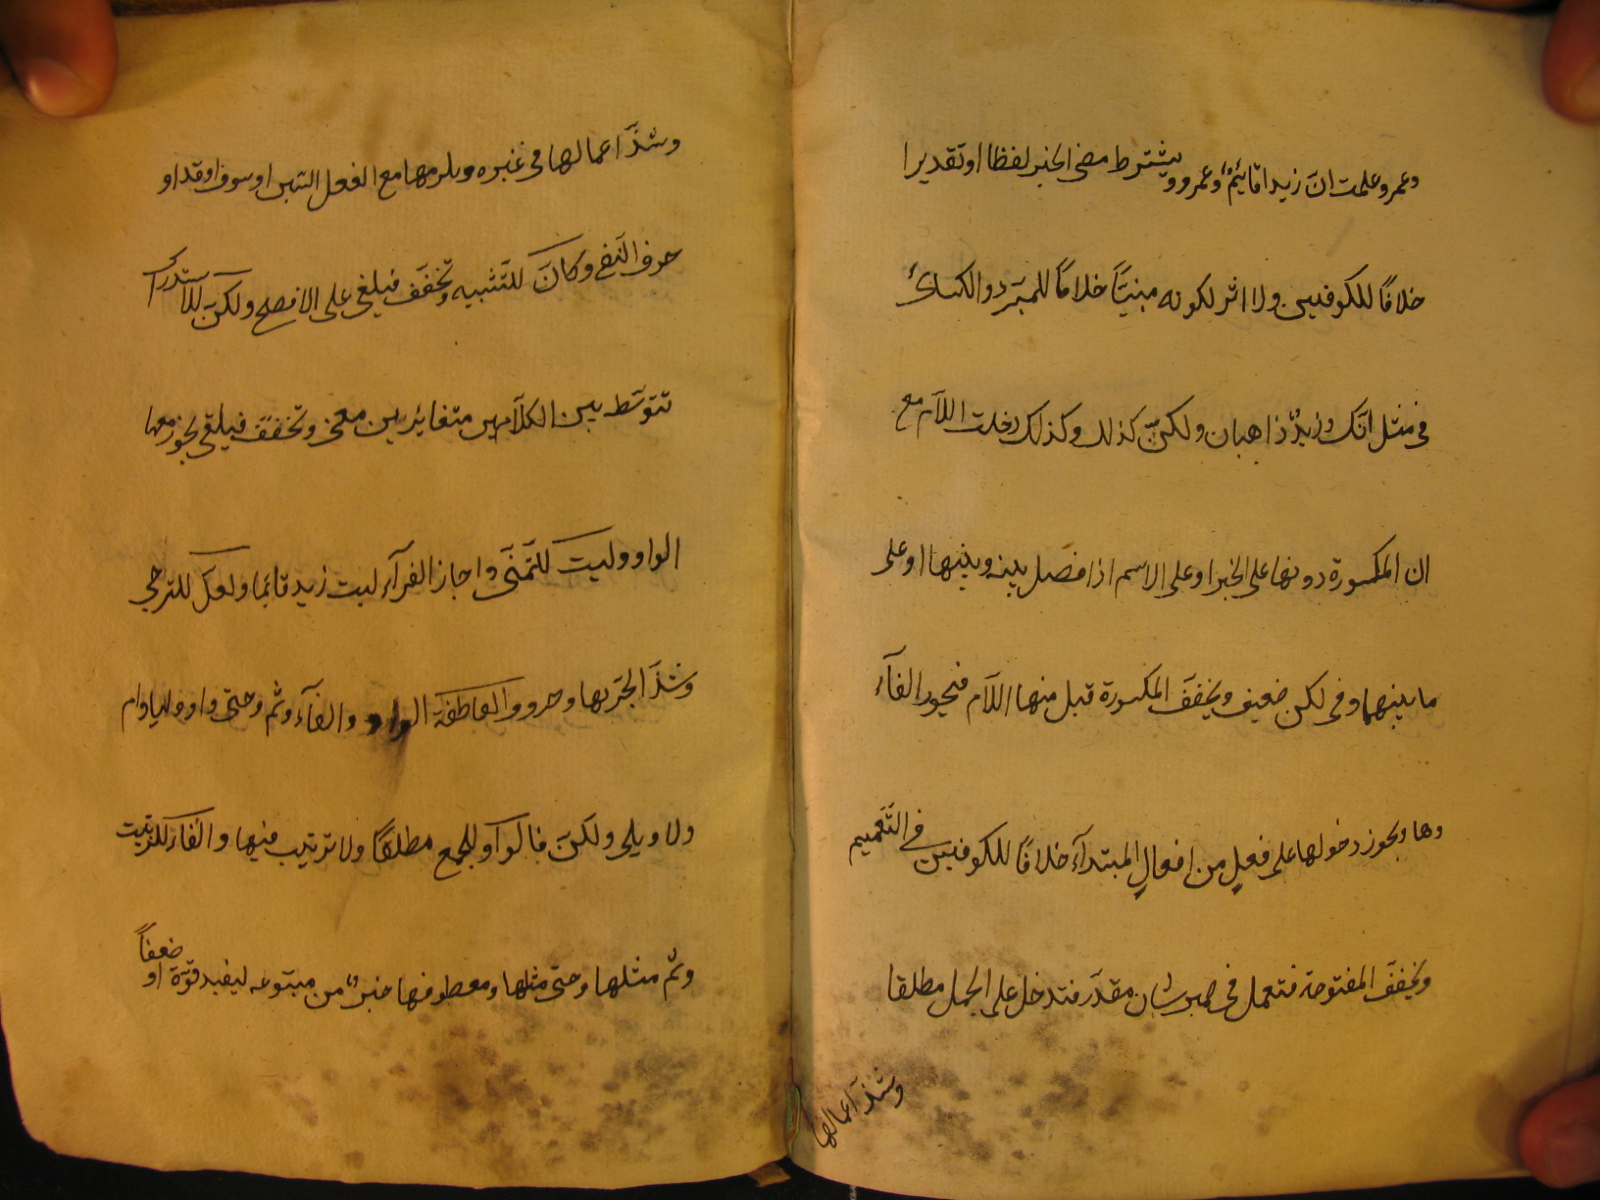 وعمرو علمت ان زيدا قائيمٌ وعمرو ويشترط مضى الخبر لفظا او تقديرا
خلافًا للكوفيين ولا اثر لكونه مبنيّاً خلافًا للمبرّد والكسائ
فى مثل انّك وزيدٌ ذاهبان ولكنّ كذلك وكذلك دخلت اللاّم مع
ان المكسورة دونها على الخبر او على الاسم اذا فصل بينه وبينها او على
ما بينهما وفى لكن ضعيف ويخفف المكسورة قبل منها اللاّم فيجوز الغآء
وها ويجوز دخولها على فعلٍ من افعالِ المبتدآء خلافًا للكوفيين فى التّعميم
ويخفف المفتوحة فتعمل فى ضمير شان مقدّر فتدخل على الجمل مطلقا
وشذّ اعمالها
وشذّ اعمالها فى غيره ويلزمها مع الفعل السين او سوف او قد او
حرف النّفى وكانّ للتّشبيه وتخفّف فيلغى على الافصح ولكنّ للاستدراك
تتوسّط بين الكلامين متغايرين معنى وتخفّف فيلغى يجوز معها
الواو وليت للتّمنّى واجاز الفرآء ليت زيد قائما ولعلّ للترجى
وشذّ الجرّ بها وحروو العاطفة الواو والفآء وثم وحتى واو واما وام
ولا وبلى ولكنّ فالواو للجمع مطلقًا ولا ترتيب فيها والفآء للترتيب
وثم مثلها وحتى مثلها ومعطوفها جزءٌ من متبوعه ليفيد قوّة او ضعفاً